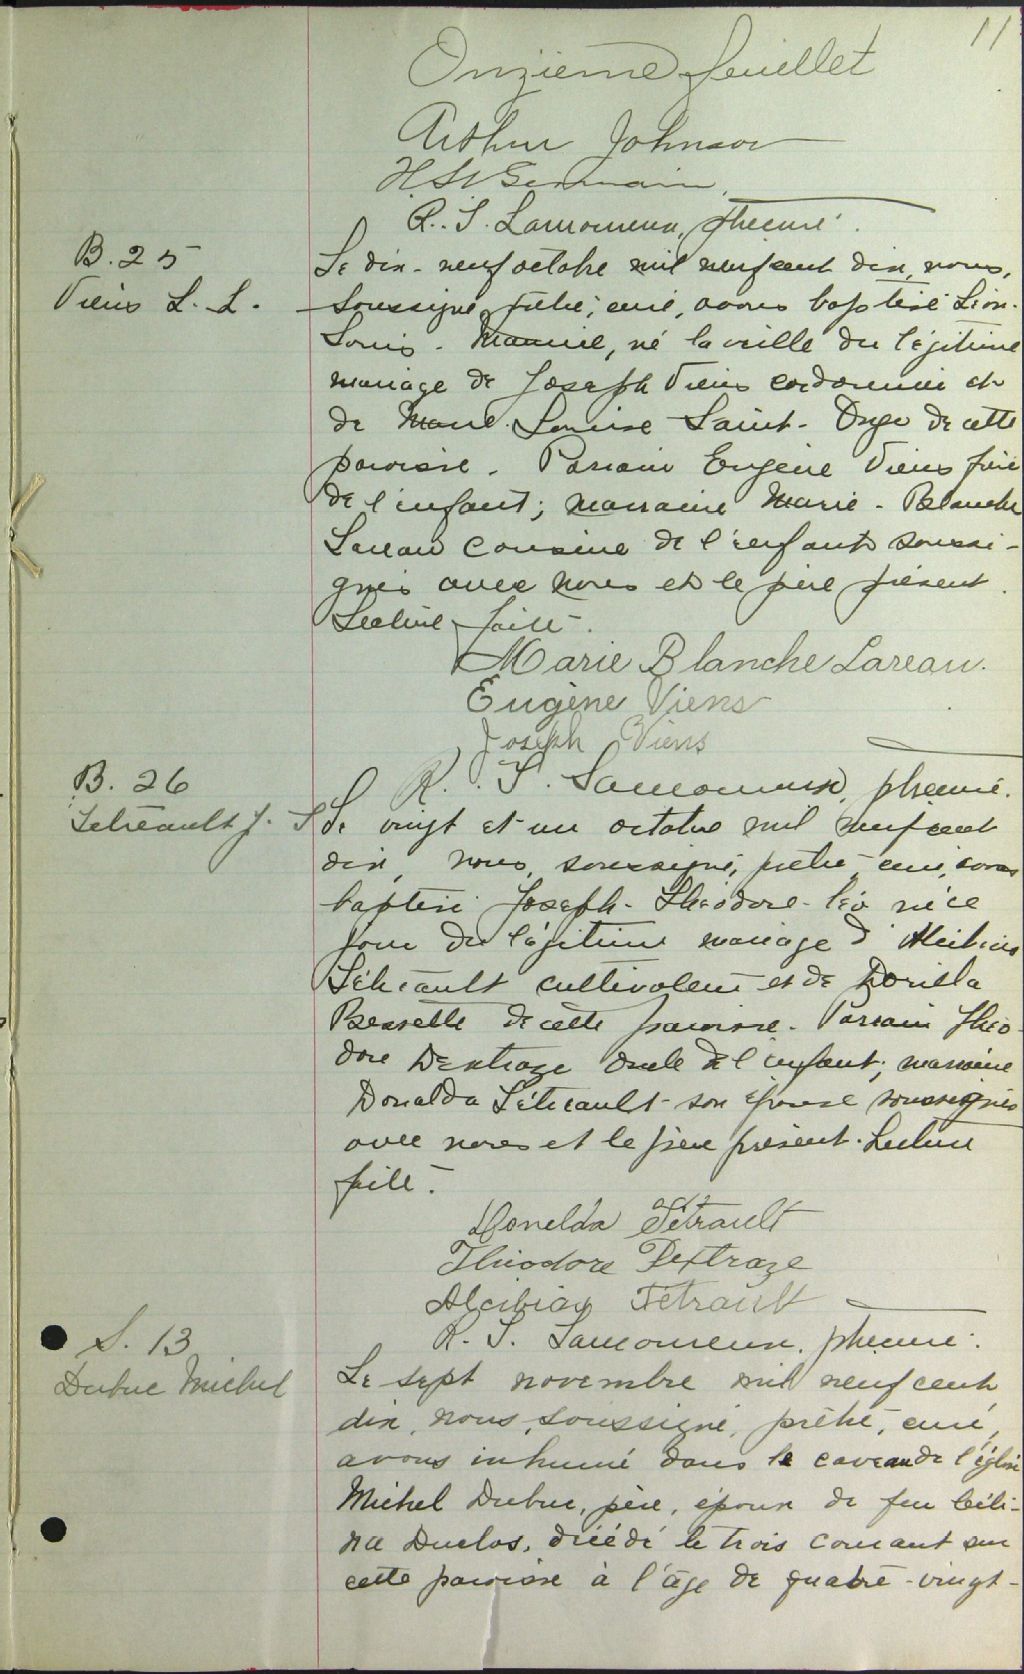 11
Onzième feuillet
Arthur Johnson
H. St Germain
R. S. Lamoureux, ptre curé.
B. 25
Viens L. L.
Le dix-neuf octobre mil neuf cent dix, nous,
soussigné, prêtre, curé, avons baptisé Léon-
Louis-, né la veille du légitime
mariage de Joseph Viens cordonnier et
de Marie Louise Saint-Onge de cette
paroisse. Parrain Eugène Viens frère
de l'enfant; marraine Marie-Blanche
Lareau cousine de l'enfant soussi-
gnés avec nous et le père présent.
Lecture faite.
Marie Blanche Lareau.
Eugène Viens
Joseph Viens
R. S. Lamoureux, ptre curé.
B. 26
Tétreault J. T
Le vingt et un octobre mil neuf cent
dix, nous, soussigné, prêtre, curé, avons
baptisé Joseph-Théodore-Léo né ce
jour du légitime mariage d'Alcibiade
Tétreault cultivateur et de Dorilla
Bessette de cette paroisse. Parrain Théo-
dore Dextraze oncle de l'enfant; marraine
Donalda Tétreault son épouse soussignés
avec nous et le père présent. Lecture
faite.
Donelda Tétrault
Théodore Dextraze
Alcibiade Tétrault
R. S. Lamoureux, ptre curé.
S. 13
Dubuc Michel
Le sept novembre mil neuf cent
dix, nous, soussigné, prêtre, curé,
avons inhumé dans le caveau de l'église
Michel Dubuc, père, époux de feu Céli-
na Duclos, décédé le trois courant en
cette paroisse à l'âge de quatre-vingt-